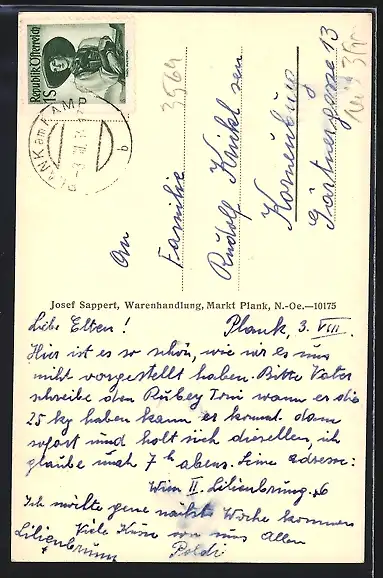 Republik Österreich
1S
PLANK am KAMP
b
3564
An
Familie
Rudolf Krikl sen
Korneuburg
Gärtnergasse 13
Josef Sappert, Warenhandlung, Markt Plank, N.-Oe.—10175
Liebe Eltern!
Plank, 3. VIII.
Hier ist es so schön, wie wir es uns
nicht vorgestellt haben. Bitte Vater
schreibe dem Toni wann er die
25 kg haben kann er kommt dann
sofort und holt sich dieselben, ich
glaube nach 7h abens. Seine adresse:
Wien II. Lilienbrung. 26
Ich möchte gerne nächste Woche kommen
Viele Küsse von uns Allen
Poldi
Lilienbrunn